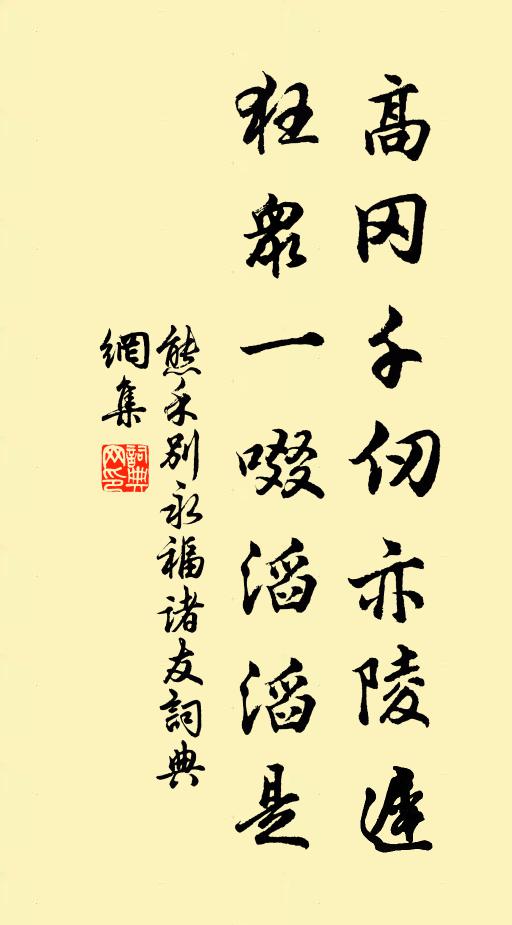 高冈千仞亦陵遲
狂眾一啜滔滔是
熊禾别永福諸友詞典
網集
詞典
网印